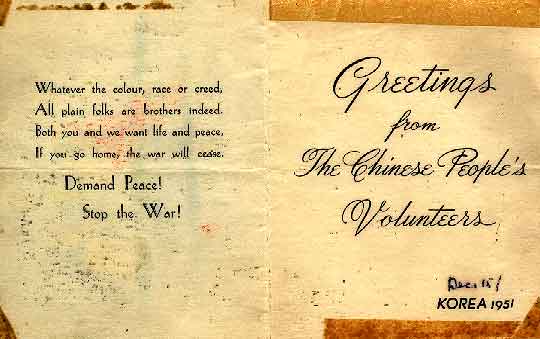 Whatever the colour, race or creed,
All plain folks are brothers indeed.
Both you and we want life and peace,
If you go home, the war will cease.
Demand Peace!
Stop the War!
Greetings
from
The Chinese People's
Volunteers
Dec.
KOREA 1951